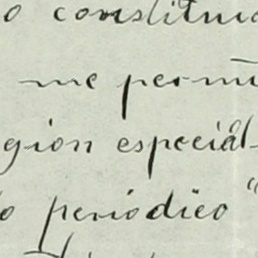 o constitui
me permi
gion especial-
o periodico "